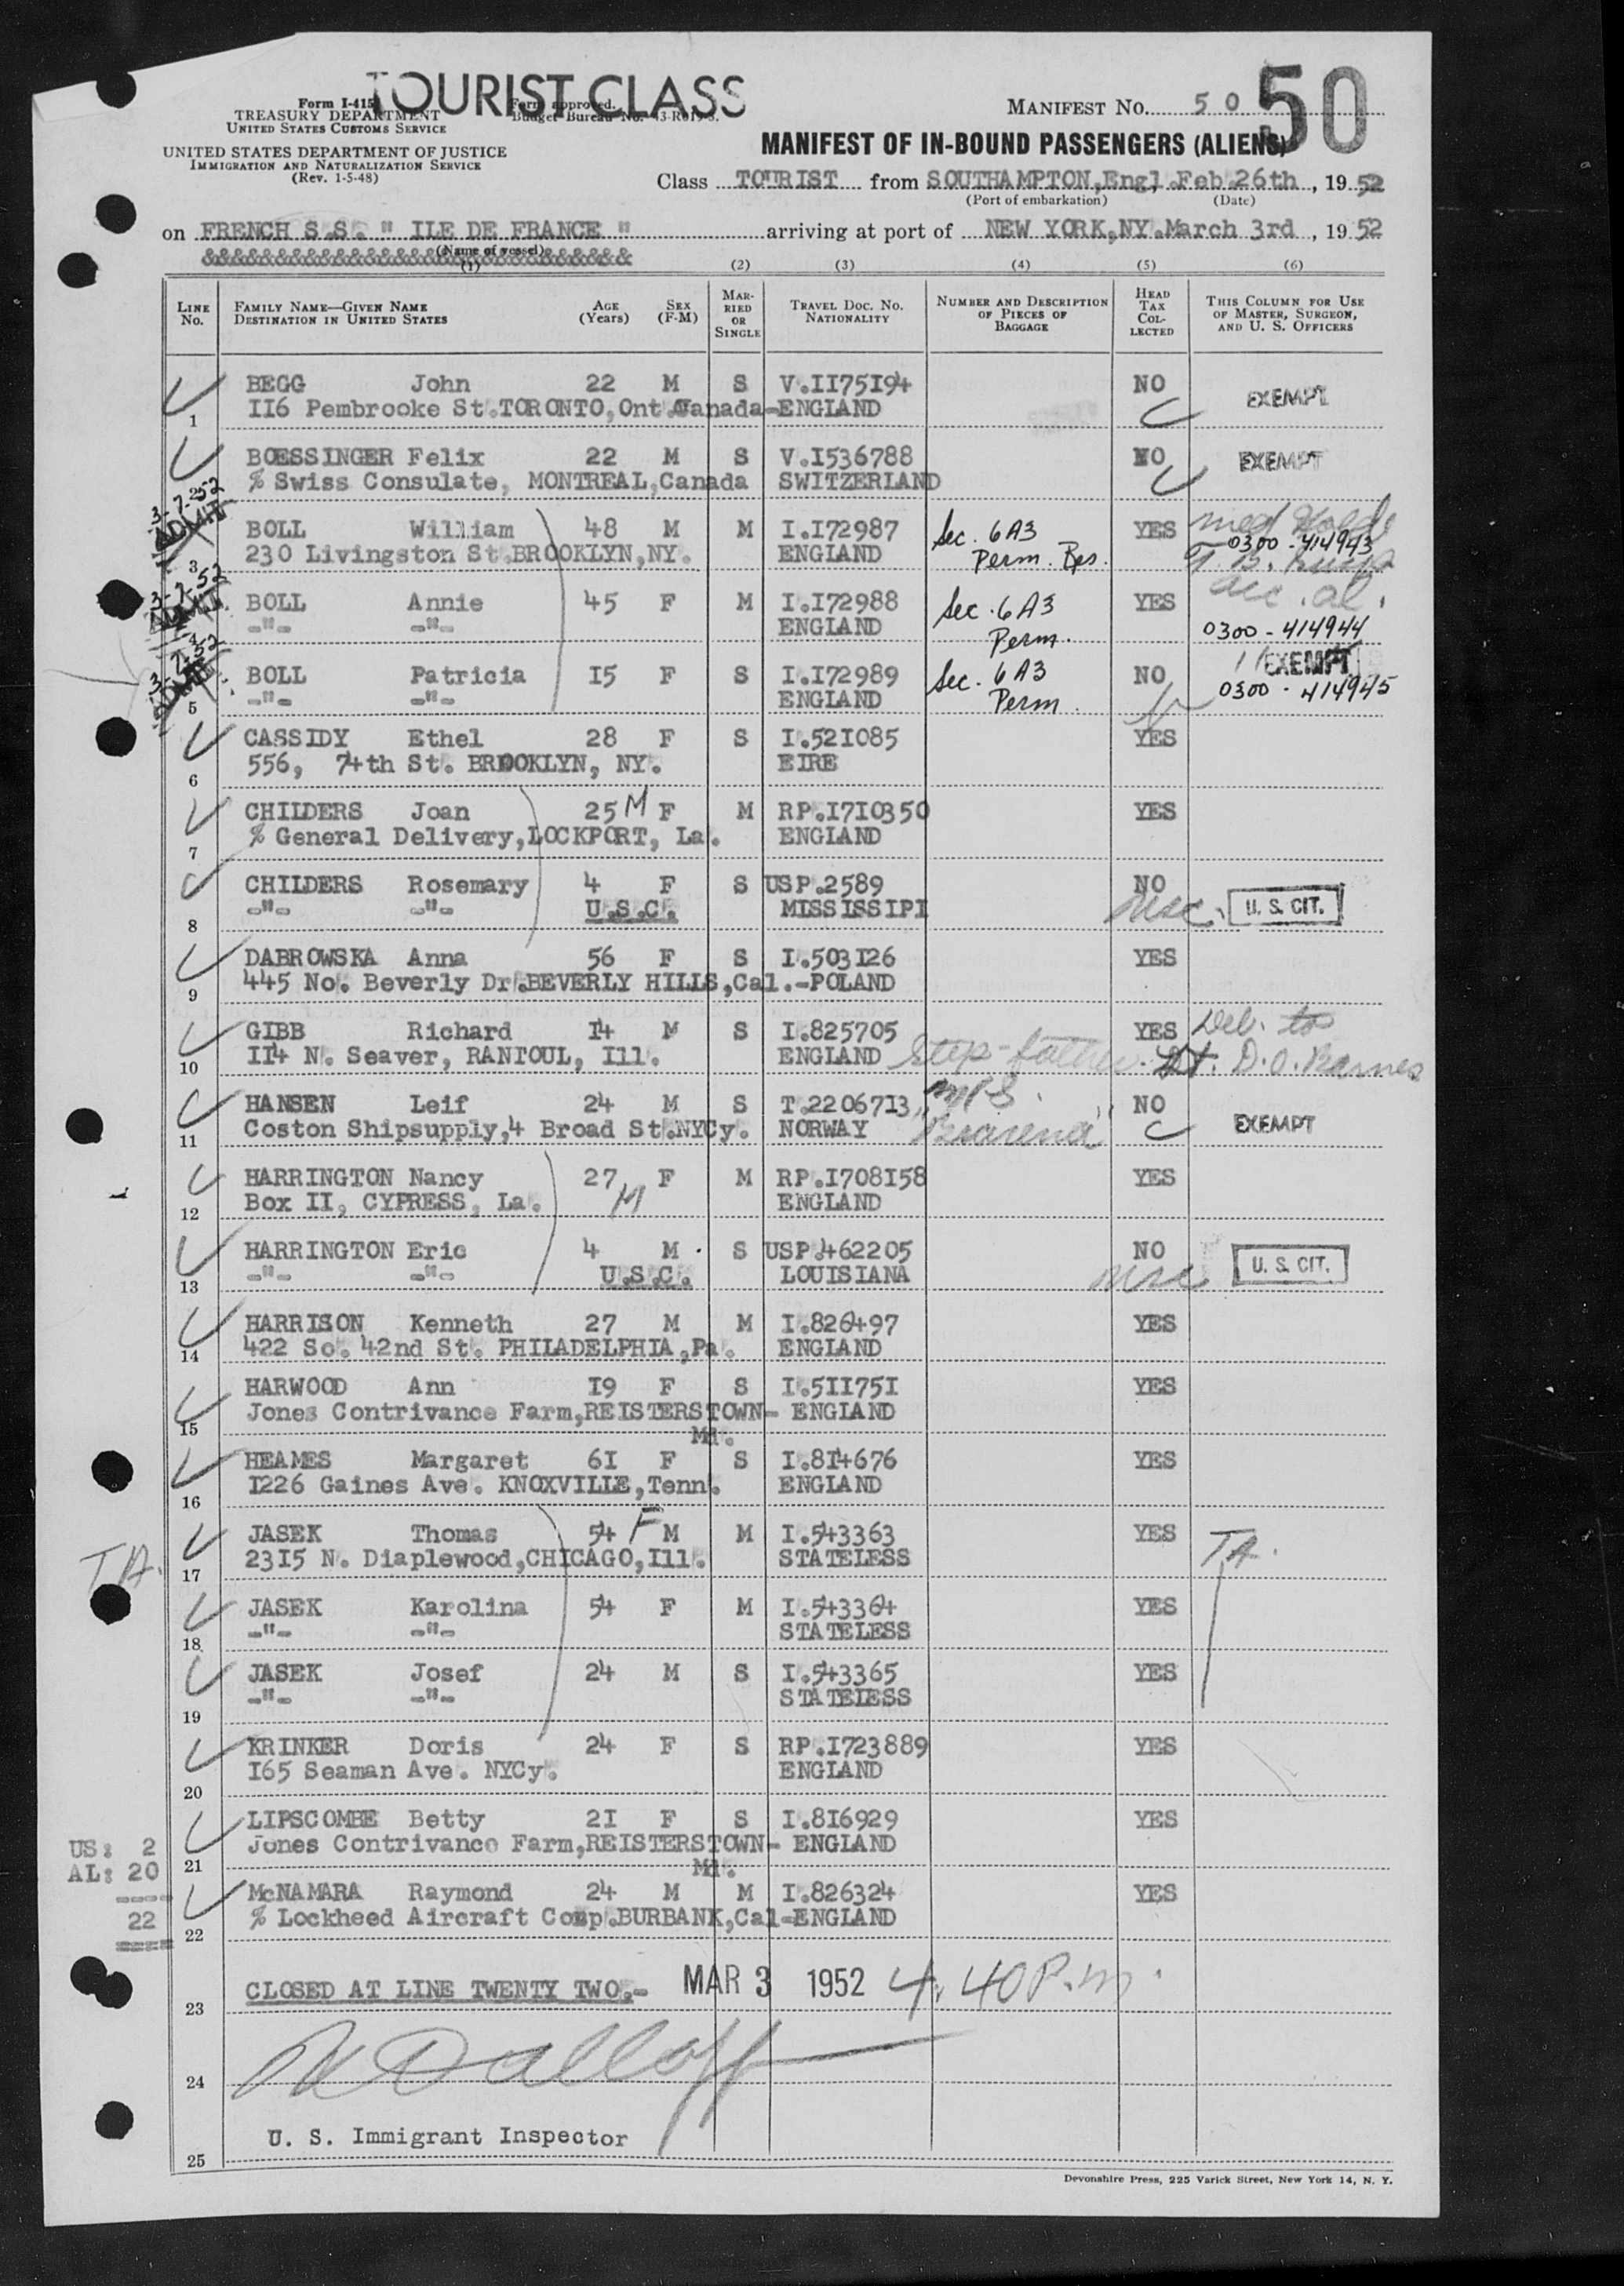 TOURIST CLASS
Form I-415
TREASURY DEPARTMENT
UNITED STATES CUSTOMS SERVICE
Form approved.
Budget Bureau No. 43-R019-3.
MANIFEST No. 50
50
UNITED STATES DEPARTMENT OF JUSTICE
IMMIGRATION AND NATURALIZATION SERVICE
(Rev. 1-5-48)
MANIFEST OF IN-BOUND PASSENGERS (ALIENS)
Class TOURIST from SOUTHAMPTON,Engl, Feb.26th, 1952
(Port of embarkation) (Date)
on FRENCH S.S. " ILE DE FRANCE " arriving at port of NEW YORK,NY.March 3rd, 1952
(Name of vessel)
(1) (2) (3) (4) (5) (6)
LINE No. FAMILY NAME—GIVEN NAME DESTINATION IN UNITED STATES AGE (Years) SEX (F-M) MARRIED OR SINGLE TRAVEL DOC. NO. NATIONALITY NUMBER AND DESCRIPTION OF PIECES OF BAGGAGE HEAD TAX COLLECTED THIS COLUMN FOR USE OF MASTER, SURGEON, AND U. S. OFFICERS
BEGG John 22 M S V.II75I94 NO EXEMPT
1 II6 Pembrooke St.TORONTO,Ont.Canada-ENGLAND
BOESSINGER Felix 22 M S V.I536788 NO EXEMPT
% Swiss Consulate, MONTREAL,Canada SWITZERLAND
3-7-52 ADMIT
BOLL William 48 M M I.I72987 Sec. 6A3 YES med Hold
0300-414943
3 230 Livingston St.BROOKLYN,NY. ENGLAND Perm. Res. T.B.
3-7-52 ADMIT
BOLL Annie 45 F M I.I72988 Sec. 6A3 YES acc. al.
4 -"- -"- ENGLAND Perm. 0300-414944
3-7-52 ADMIT
BOLL Patricia I5 F S I.I72989 Sec. 6A3 NO EXEMPT
5 -"- -"- ENGLAND Perm. 0300-414945
CASSIDY Ethel 28 F S I.52I085 YES
6 556, 74th St. BROOKLYN, NY. EIRE
CHILDERS Joan 25 M F M RP.I7I0350 YES
7 % General Delivery,LOCKPORT, La. ENGLAND
CHILDERS Rosemary 4 F S USP.2589 NO
8 -"- -"- U.S.C. MISSISSIPI usc. U. S. CIT.
DABROWSKA Anna 56 F S I.503I26 YES
9 445 No. Beverly Dr.BEVERLY HILLS,Cal.-POLAND
GIBB Richard I4 M S I.825705 YES Del. to
10 II4 N. Seaver, RANTOUL, Ill. ENGLAND Step-father. Lt. D.O. Barnes
HANSEN Leif 24 M S T.22067I3 NO EXEMPT
11 Coston Shipsupply,4 Broad St.NYCy. NORWAY
HARRINGTON Nancy 27 F M RP.I708I58 YES
12 Box II, CYPRESS, La. M ENGLAND
HARRINGTON Eric 4 M S USP.462205 NO
13 -"- -"- U.S.C. LOUISIANA usc U. S. CIT.
HARRISON Kenneth 27 M M I.826497 YES
14 422 So. 42nd St. PHILADELPHIA,Pa. ENGLAND
HARWOOD Ann I9 F S I.5II75I YES
15 Jones Contrivance Farm,REISTERSTOWN- ENGLAND
Md.
HEAMES Margaret 6I F S I.8I4676 YES
16 I226 Gaines Ave. KNOXVILLE,Tenn. ENGLAND
T.A.
JASEK Thomas 54 F M M I.543363 YES T.A.
17 23I5 N. Diaplewood,CHICAGO,Ill. STATELESS
JASEK Karolina 54 F M I.543364 YES
18 -"- -"- STATELESS
JASEK Josef 24 M S I.543365 YES
19 -"- -"- STATELESS
KRINKER Doris 24 F S RP.I723889 YES
20 I65 Seaman Ave. NYCy. ENGLAND
LIPSCOMBE Betty 2I F S I.8I6929 YES
21 Jones Contrivance Farm,REISTERSTOWN- ENGLAND
Md.
US: 2
AL: 20
----
22
====
McNAMARA Raymond 24 M M I.826324 YES
22 % Lockheed Aircraft Comp.BURBANK,Cal-ENGLAND
23 CLOSED AT LINE TWENTY TWO.- MAR 3 1952 4:40 P.m.
24
25 U. S. Immigrant Inspector
Devonshire Press, 225 Varick Street, New York 14, N. Y.